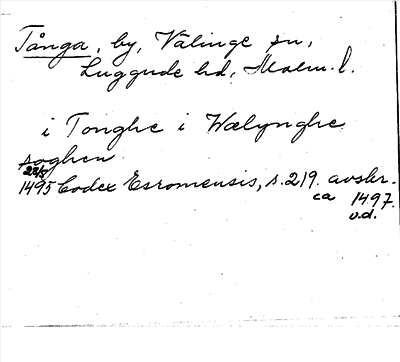 Tånga, by, Välinge sn,
Luggude hd, Malm. l.
i Tonghe i Wælynghe
soghen
1495 Codex Esromensis, s. 219. avskr.
ca 1497.
v.d.